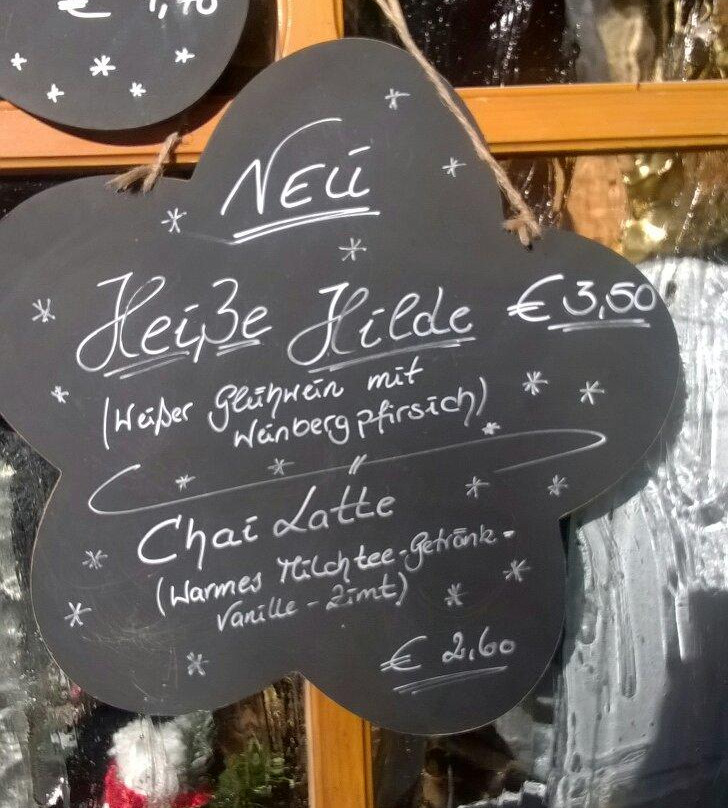 € 1,70
NEU
Heiße Hilde € 3,50
(Weißer Glühwein mit
Weinbergpfirsich)
Chai Latte
(Warmes Milchtee-Getränk-
Vanille-Zimt)
€ 2,60